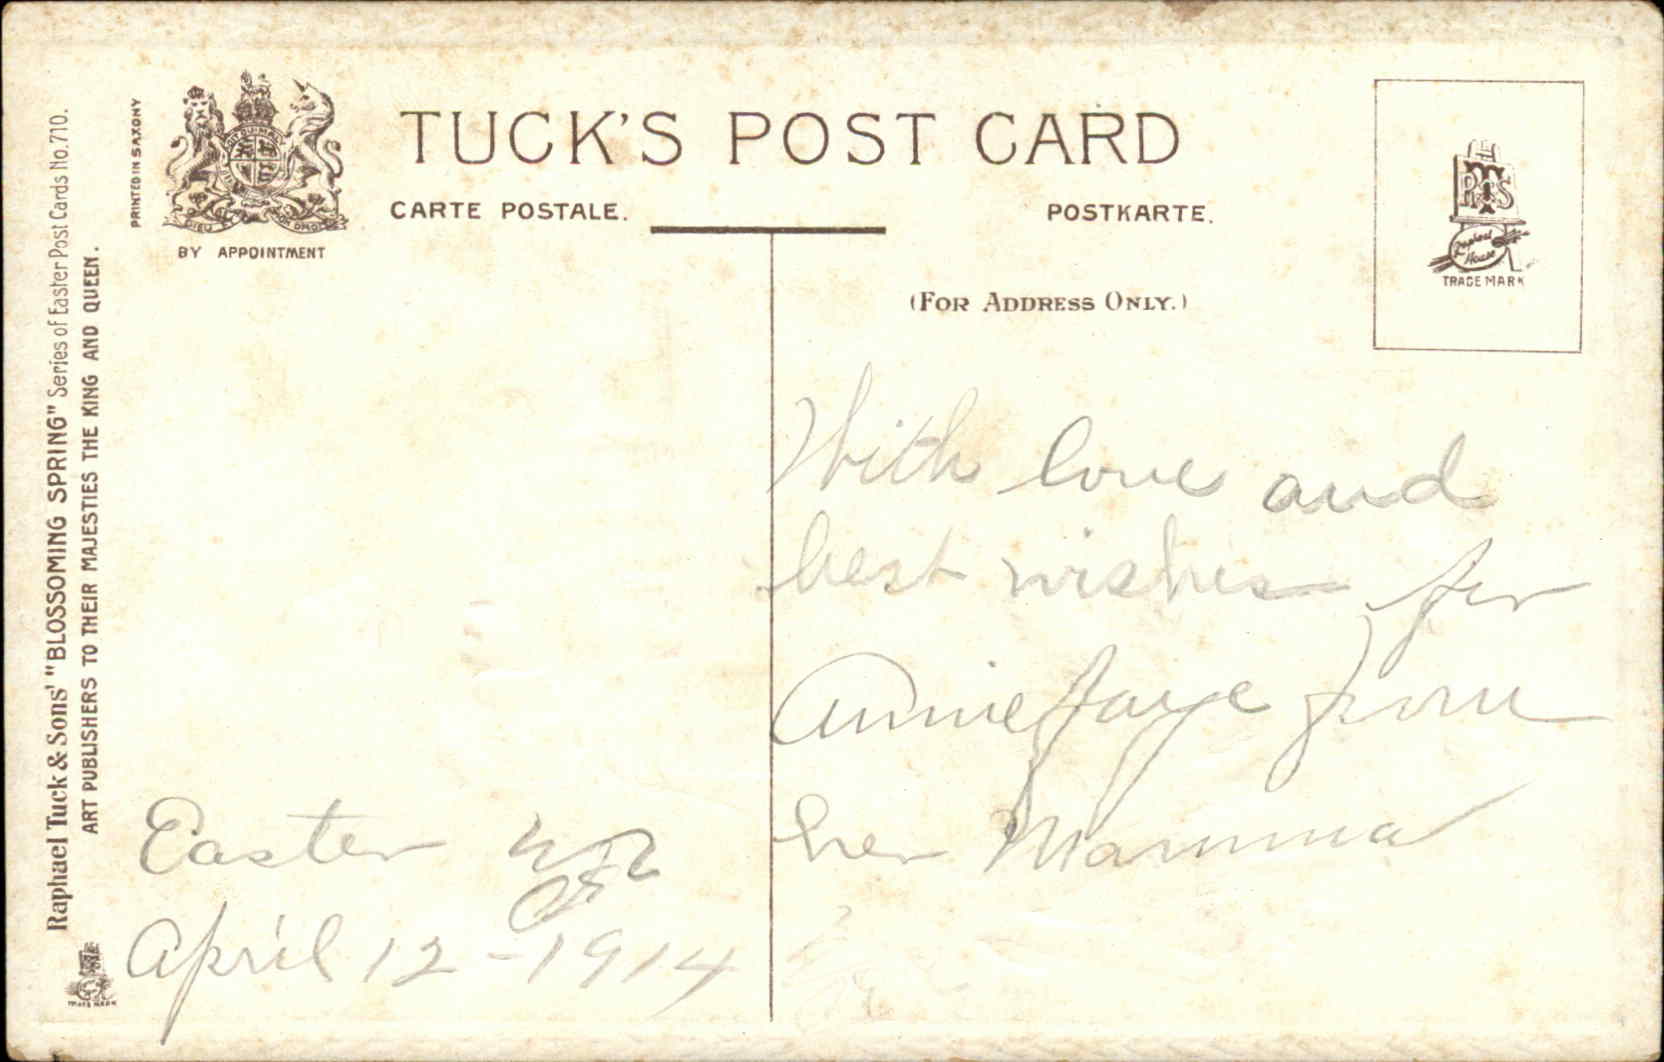 Raphael Tuck & Sons' "BLOSSOMING SPRING" Series of Easter Post Cards No. 710.
ART PUBLISHERS TO THEIR MAJESTIES THE KING AND QUEEN.
TRADE MARK
PRINTED IN SAXONY
BY APPOINTMENT
TUCK'S POST CARD
CARTE POSTALE.
POSTKARTE.
(FOR ADDRESS ONLY.)
RTS
Raphael
House
TRADE MARK
With love and
best wishes for
Annie Faye from
her Mamma
Easter
April 12 - 1914